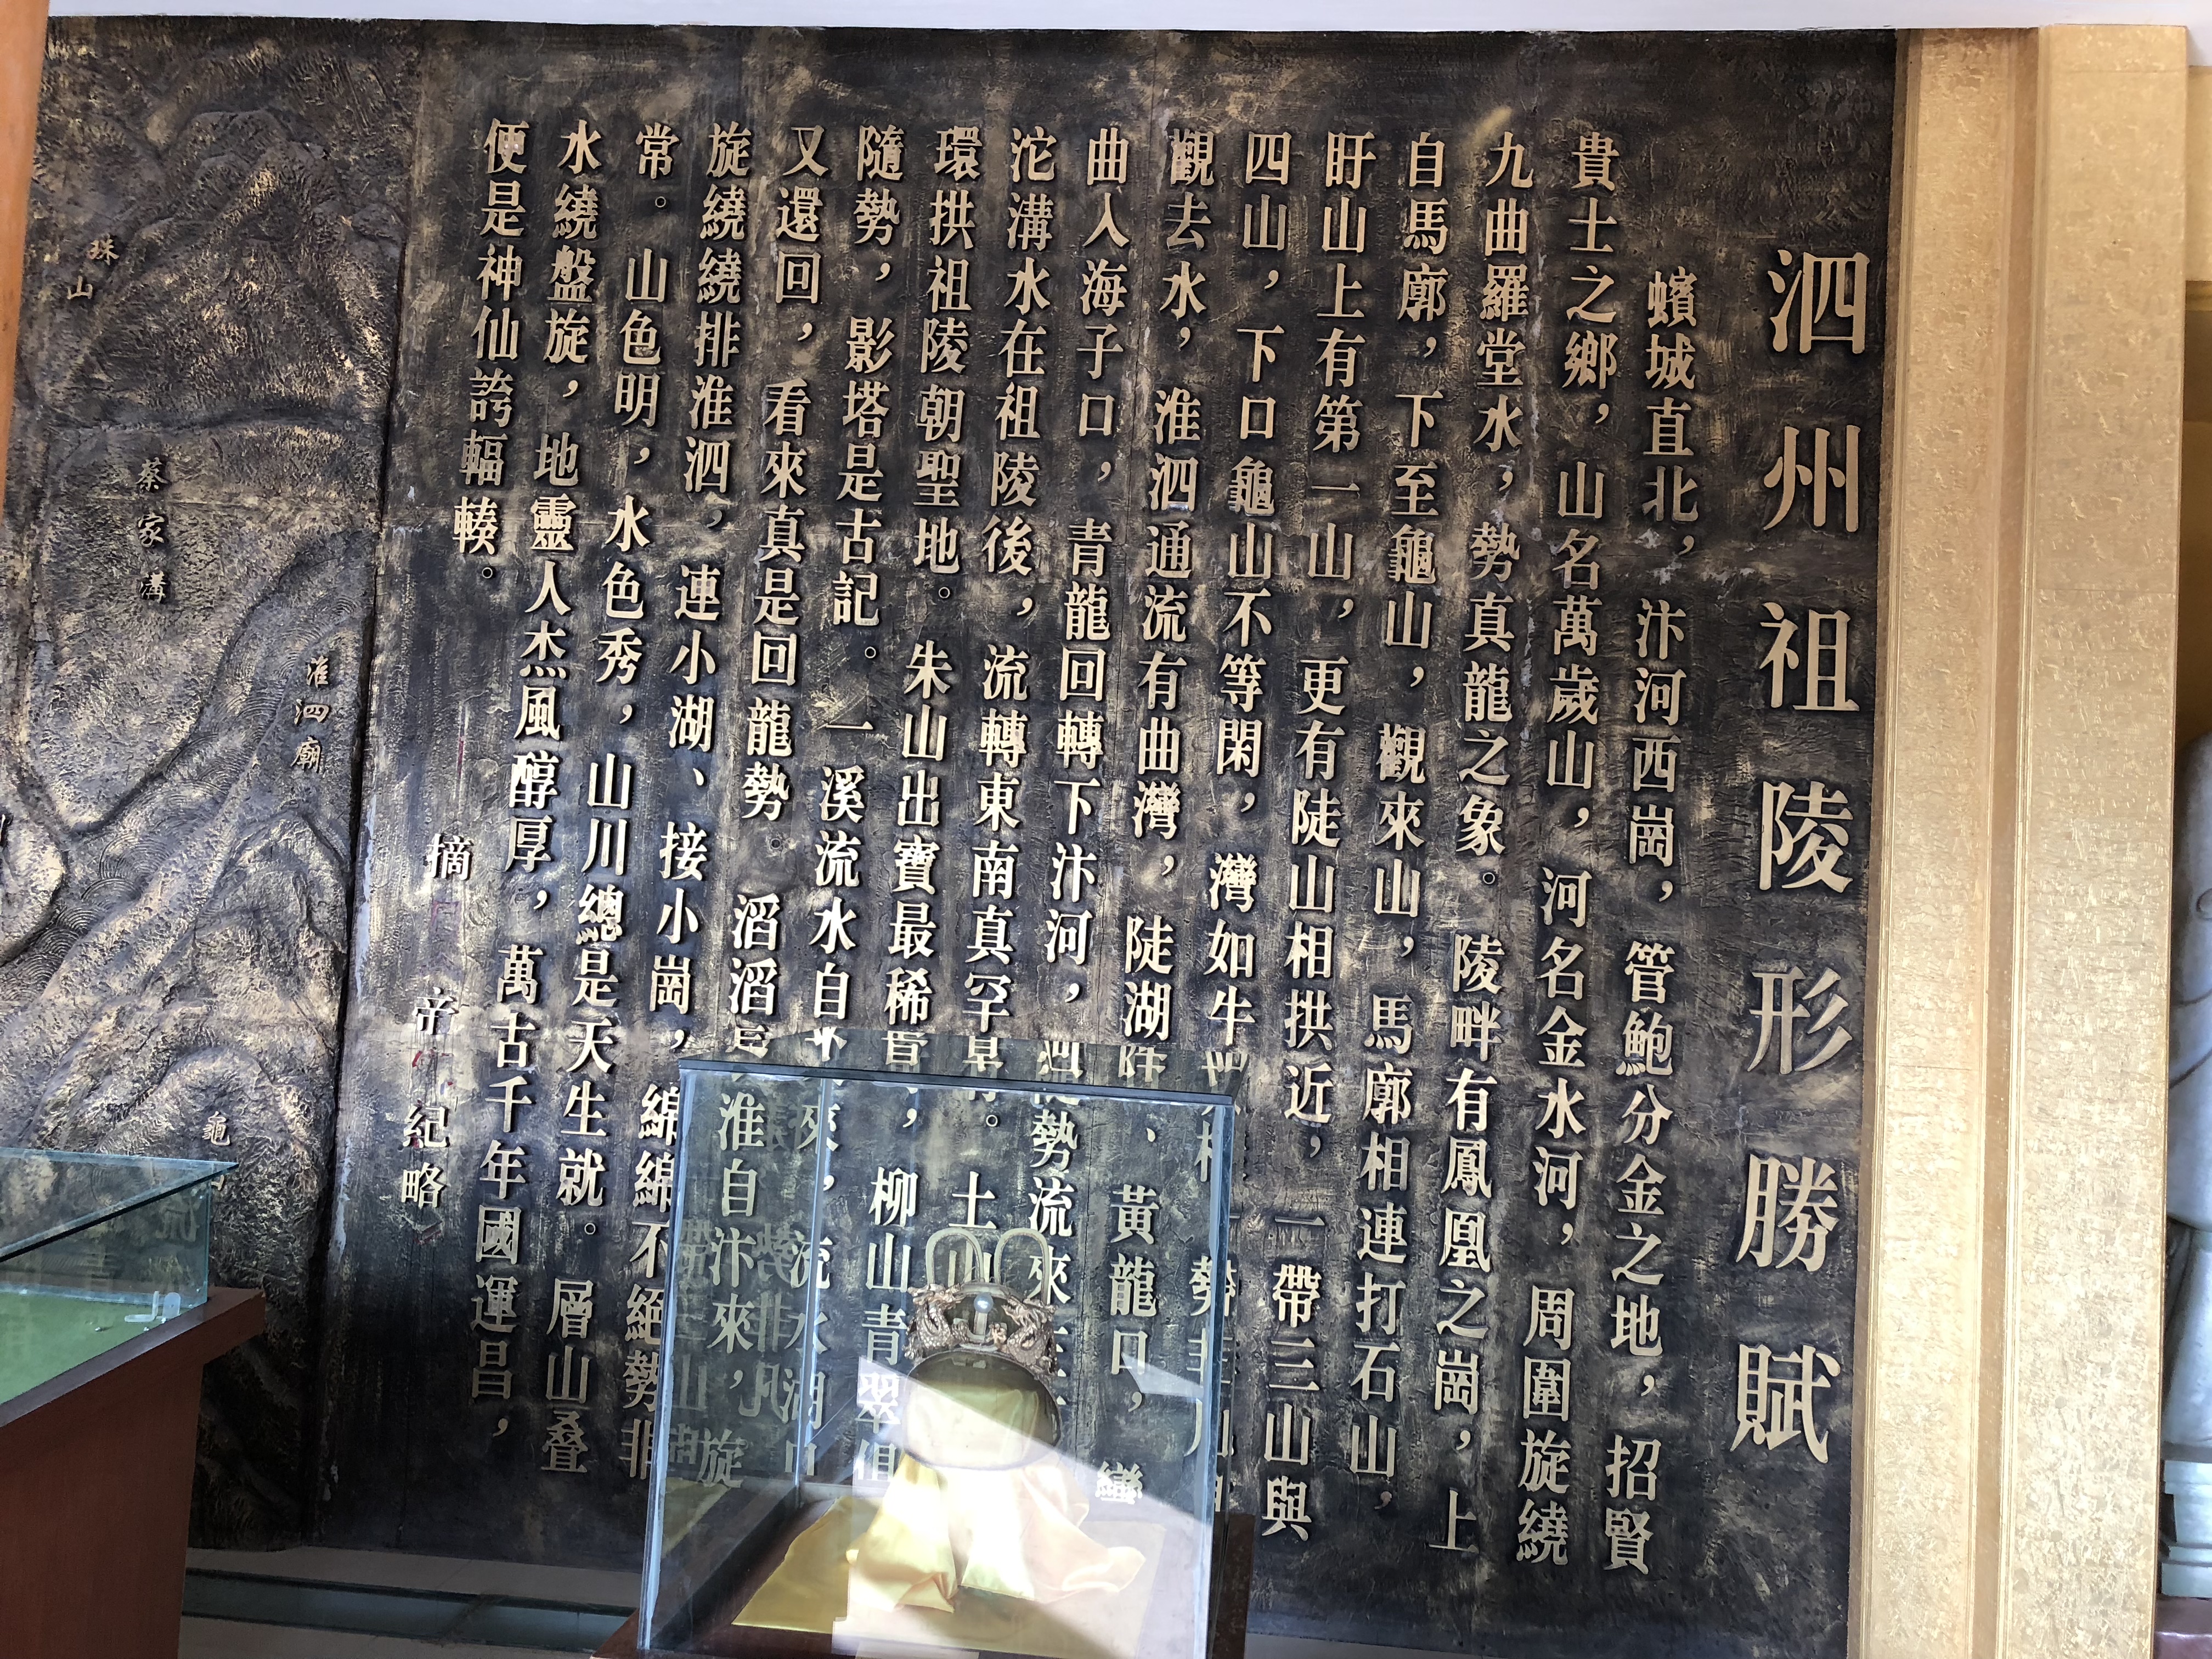 泗州祖陵形勝賦
蠙城直北，汴河西崗，管鮑分金之地，招賢
貴士之鄉，山名萬歲山，河名金水河，周圍旋繞
九曲羅堂水，勢真龍之象。陵畔有鳳凰之崗，上
自馬廓，下至龜山，觀來山，馬廓相連打石山，
盱山上有第一山，更有陡山相拱近，一帶三山與
四山，下口龜山不等閑，灣如牛
觀去水，淮泗通流有曲灣，陡湖、黃龍口，巒
曲入海子口，青龍回轉下汴河，勢流來
沱溝水在祖陵後，流轉東南真罕。土
環拱祖陵朝聖地。朱山出寶最稀，柳山青翠俱
隨勢，影塔是古記。一溪流水自來，流水湖
又還回，看來真是回龍勢。滔滔淮自汴來，旋
旋繞繞排淮泗，連小湖、接小崗，綿綿不絕勢非
常。山色明，水色秀，山川總是天生就。層山叠
水繞盤旋，地靈人杰風醇厚，萬古千年國運昌，
便是神仙誇輻輳。
摘 帝 紀略
珠山
蔡家溝
淮泗廟
龜